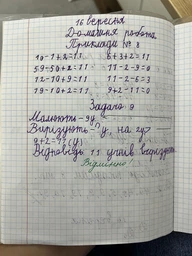 16 вересня
Домашня робота
Приклади № 8
10-1+2=11 6+3+2=11
59-50+2=11 11-2-9=0
12-10+9=11 11-2-6=3
19-10+2=11 9+2-11=0
Задача 9
Малюють-9у.
Вирізують-?у, на 2у>
9+2=11(у)
Відповідь 11 учнів вирізують
Відмінно!